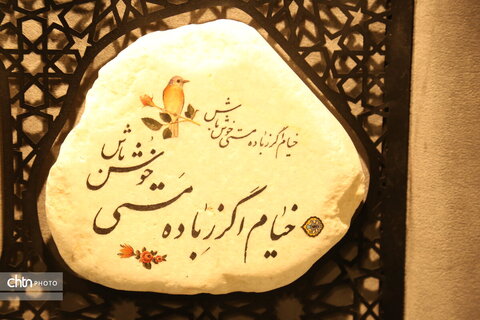 خیام اگر ز باده مستی خوش باش
خیام اگر ز باده مستی
خوش باش
chtn PHOTO